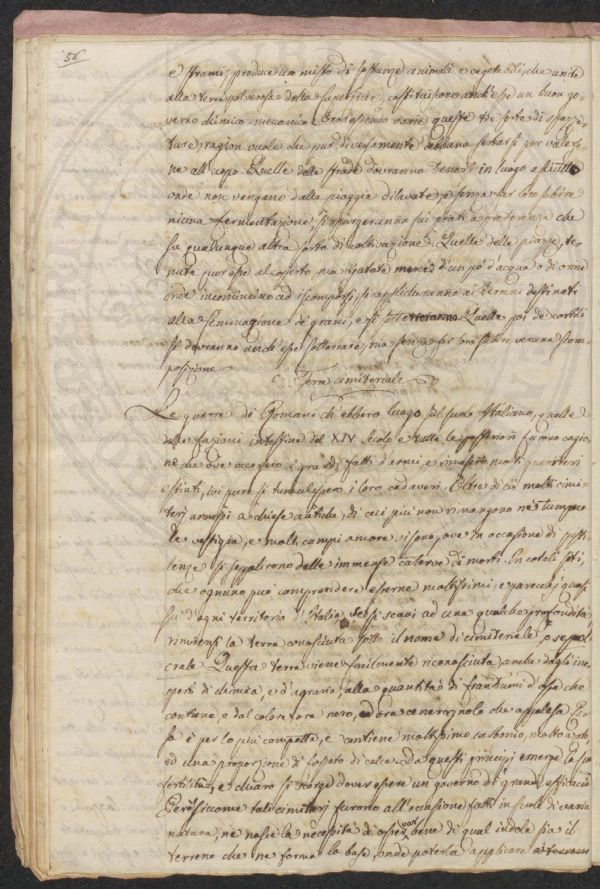 56
e strami, produce un misto di sostanze animali e vegetabili, che unite
alla terra polverosa della superficie, costituiscono anch'esse un buon go-
verno chimico-meccanico. Ora essendo varie queste tre sorte di spazza-
ture, ragion vuole che pur diversamente debbano serbarsi per valerse-
ne all'uopo. Quelle delle strade dovranno tenersi in luogo asciutto
onde non vengano dalla pioggia dilavate, e senza far loro subire
niuna fermentazione, si spargeranno sui prati a preferenza che
su qualunque altra sorta di coltivazione. Quelle delle piazze te-
nute pur esse al coperto, ma ajutate mercè d'un po' d'acqua o di orine
onde incomincino ad iscomporsi, si applicheranno ai terreni destinati
alla seminagione di grani, e si sotterreranno. Quelle poi de' cortili
si dovranno anch'esse sotterrare, ma senza far loro subire veruna scom-
posizione.
Terra cimiteriale
Le guerre de' Romani ch'ebbero luogo sul suolo Italiano, quelle
delle fazioni intestine del XIV secolo e tutte le posteriori furono cagio-
ne che ove accesero i grandi fatti d'armi, e rimasero morti guerrieri
estinti, ivi pure si tumulassero i loro cadaveri. Oltre di ciò molti cimi-
teri annessi a chiese antiche, di cui più non rimangono nè tampoco
le vestigia, e molti campi ancora vi sono, ove in occasione di pesti-
lenze si seppellirono delle immense caterve di morti. In cotali siti,
che ognuno può comprendere esserne moltissimi, e parecchj quasi
su d'ogni territorio d'Italia, se si scavi ad una qualche profondità,
rinviensi la terra conosciuta sotto il nome di cimiteriale, o sepol-
crale. Questa terra viene facilmente riconosciuta, anche dagli ine-
sperti di chimica, e d'agraria, alla quantità di frantumi d'ossa che
contiene, e dal colore ora nero, ed ora cenerognolo che appalesa. Es-
sa è per lo più compatta, e contiene moltissimo carbonio, molto azoto
ed una proporzione di fosfato di calce. Da questi principj emerge la sua
fertilità, e chiaro si scorge dover essere un governo di grande efficacia.
Però siccome tali cimiterj furono all'occasione fatti in suoli di varia
natura, ne nasce la necessità di osservar bene di qual indole sia il
terreno che ne forma la base, onde poterla applicare ai terreni